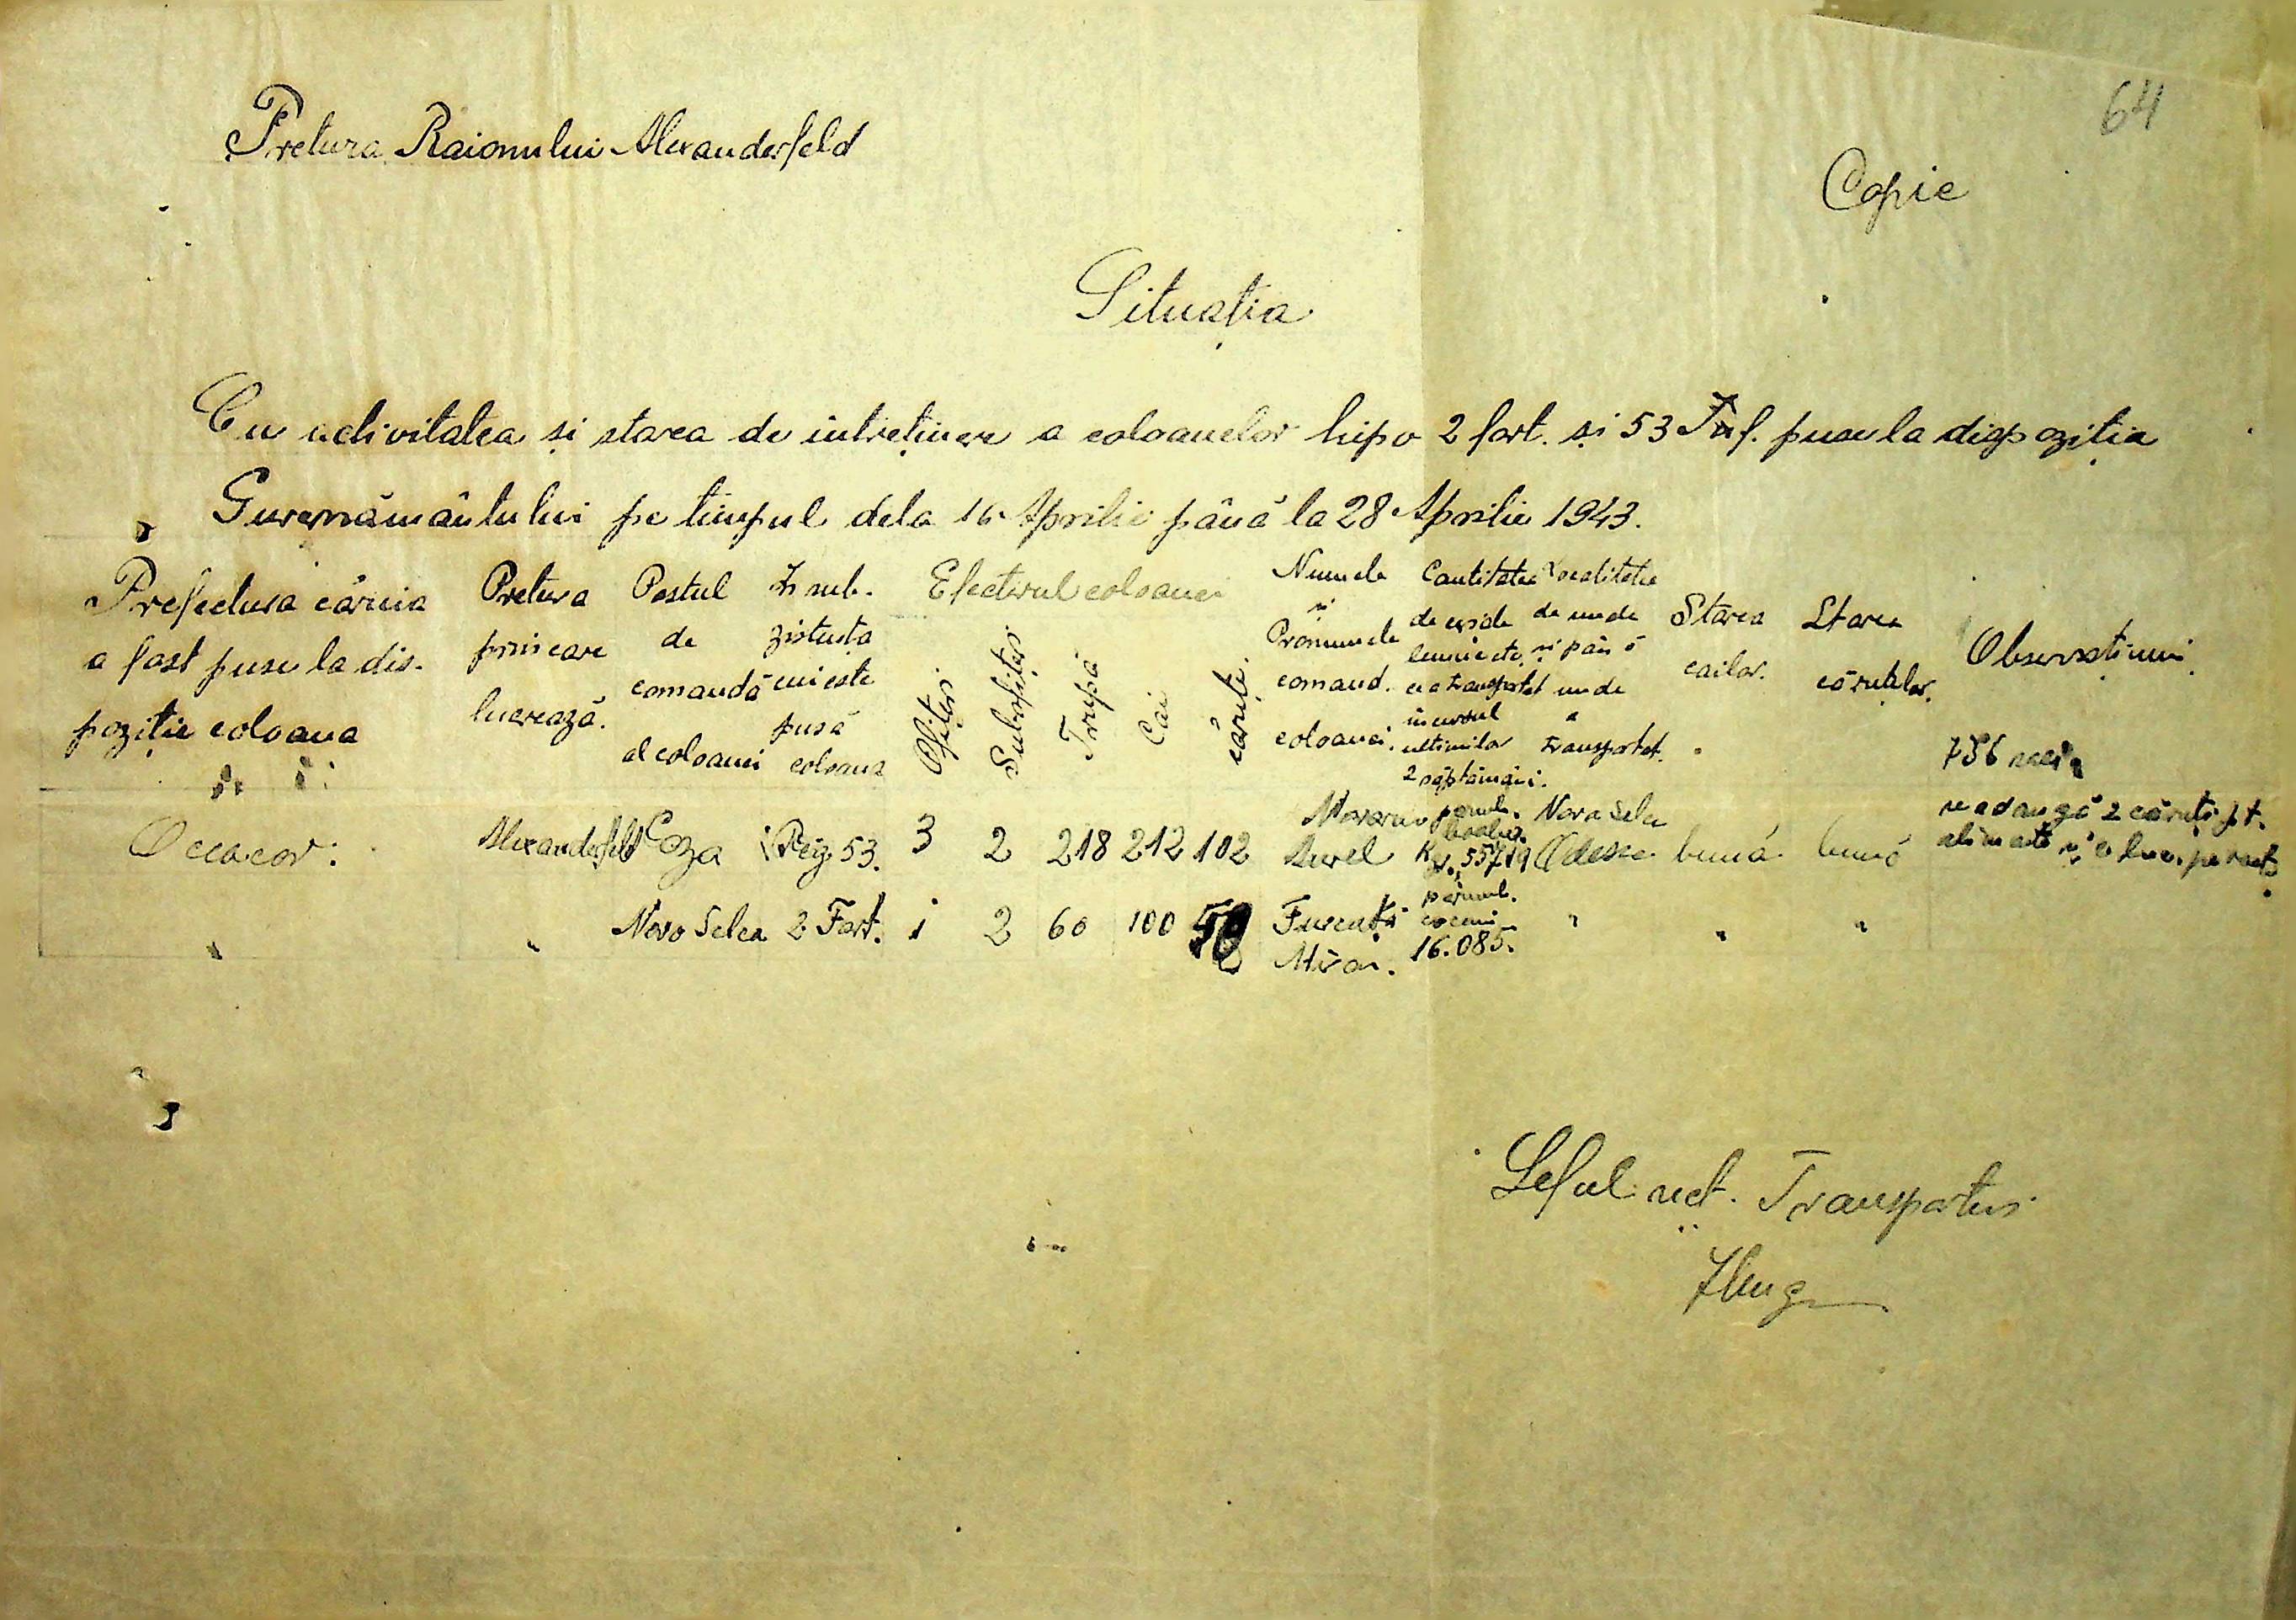 64
Pretura Raionului Alexanderfeld
Copie
Situația
Cu activitatea și starea de întreținere a coloanelor hipo 2 fort. și 53 Inf. puse la dispoziția
Guvernământului pe timpul dela 16 Aprilie până la 28 Aprilie 1943.
Prefectura căruia
a fost puse la dis-
poziție coloana
Pretura
prin care
lucrează.
Postul
de
comandă
al coloanei
Insub-
zistența
cui este
pusă
coloana
Efectivul coloanei
Ofițeri
Subofițeri
Trupă
Cai
căruțe.
Numele
și
Pronumele
comand.
coloanei.
Cantitatea
de
lemne etc.
ce a transportat
în cursul
ultimilor
2 săptămâni.
Localitatea
de unde
și până
unde
a
transportat.
Starea
cailor.
Starea
căruțelor.
Observațiuni
Oceacov. Alexanderfeld Coza Reg. 53. 3 2 218 212 102
Aurel
Kg. 55719
Nova Selca
Odessa
bună bună
756 saci
se adaugă 2 căruțe pt.
" " Novo Selca 2 Fort. 1 2 60 100
Mir
16.085.
" " "
Șeful sect. Transportur